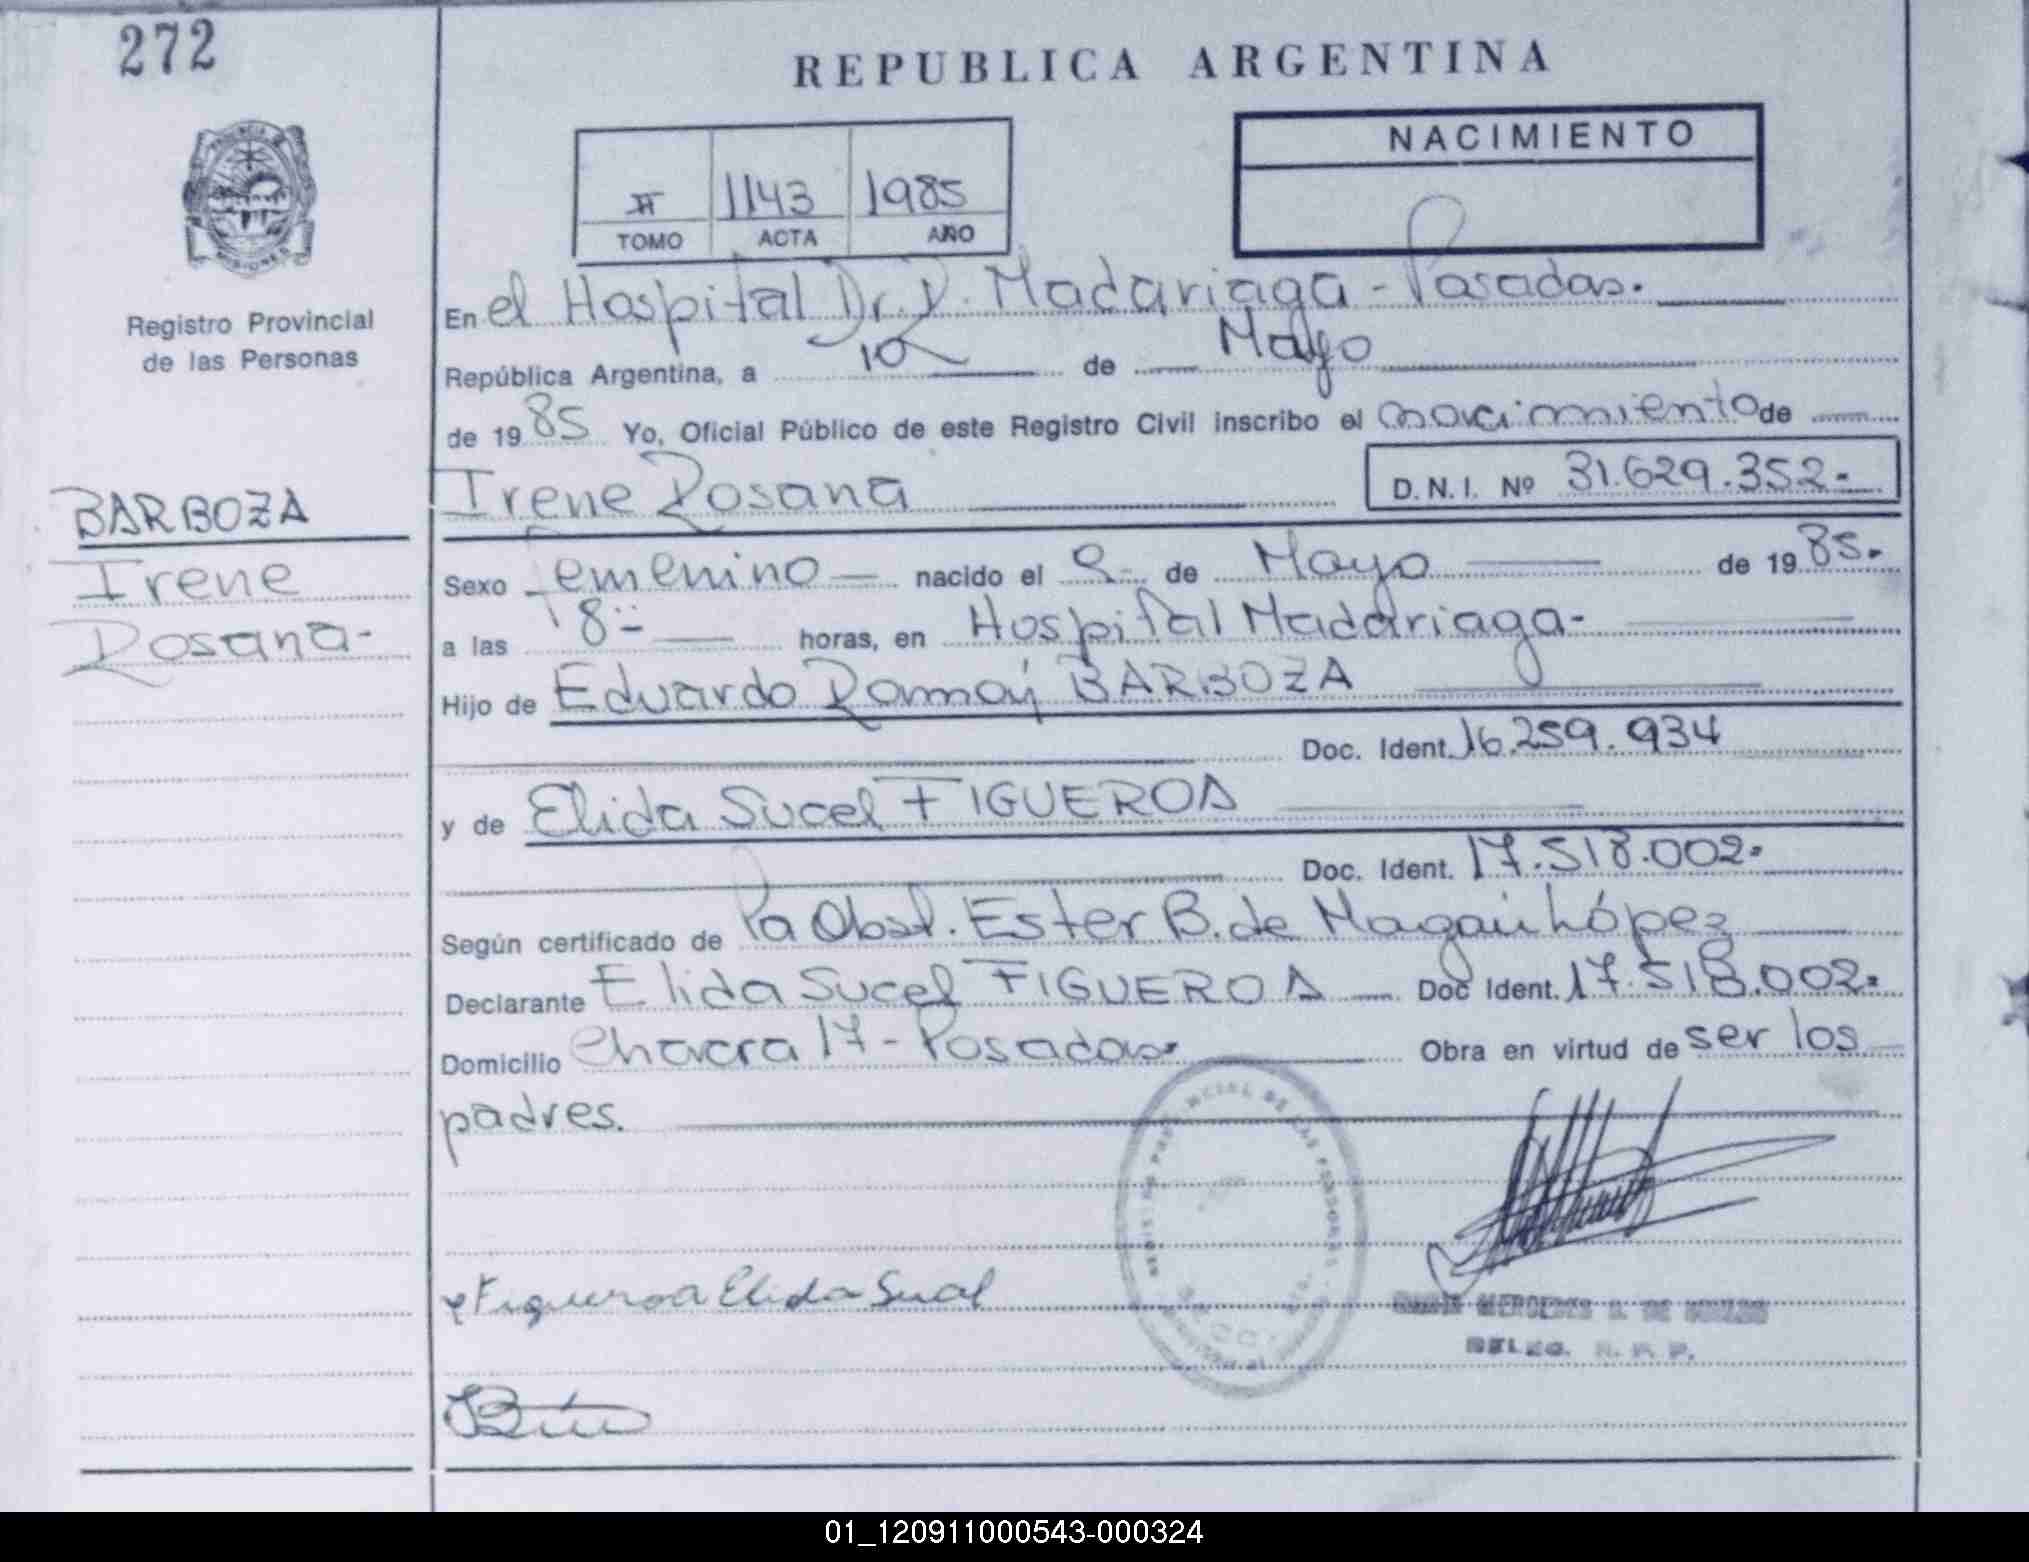 272
REPUBLICA ARGENTINA
NACIMIENTO
II 1143 1985
TOMO ACTA AÑO
PROVINCIA DE MISIONES
Registro Provincial
de las Personas
En el Hospital Dr. R. Madariaga - Posadas.
República Argentina, a 10 de Mayo
de 1985 Yo, Oficial Público de este Registro Civil inscribo el nacimiento de
Irene Rosana D.N.I. Nº 31.629.352-
BARBOZA
Irene
Rosana-
Sexo Femenino nacido el 9 de Mayo de 1985.
a las 18 horas, en Hospital Madariaga-
Hijo de Eduardo Ramón BARBOZA
Doc. Ident. 16.259.934
y de Elida Sucel FIGUEROA
Doc. Ident. 17.518.002-
Según certificado de la Obst. Ester B. de López
Declarante Elida Sucel FIGUEROA Doc Ident. 17.518.002-
Domicilio Chacra 17 - Posadas- Obra en virtud de ser los
padres.
REGISTRO PROVINCIAL DE LAS PERSONAS
Figueroa Elida Sucel
MERCEDES
DELEG. R. P. P.
01_120911000543-000324